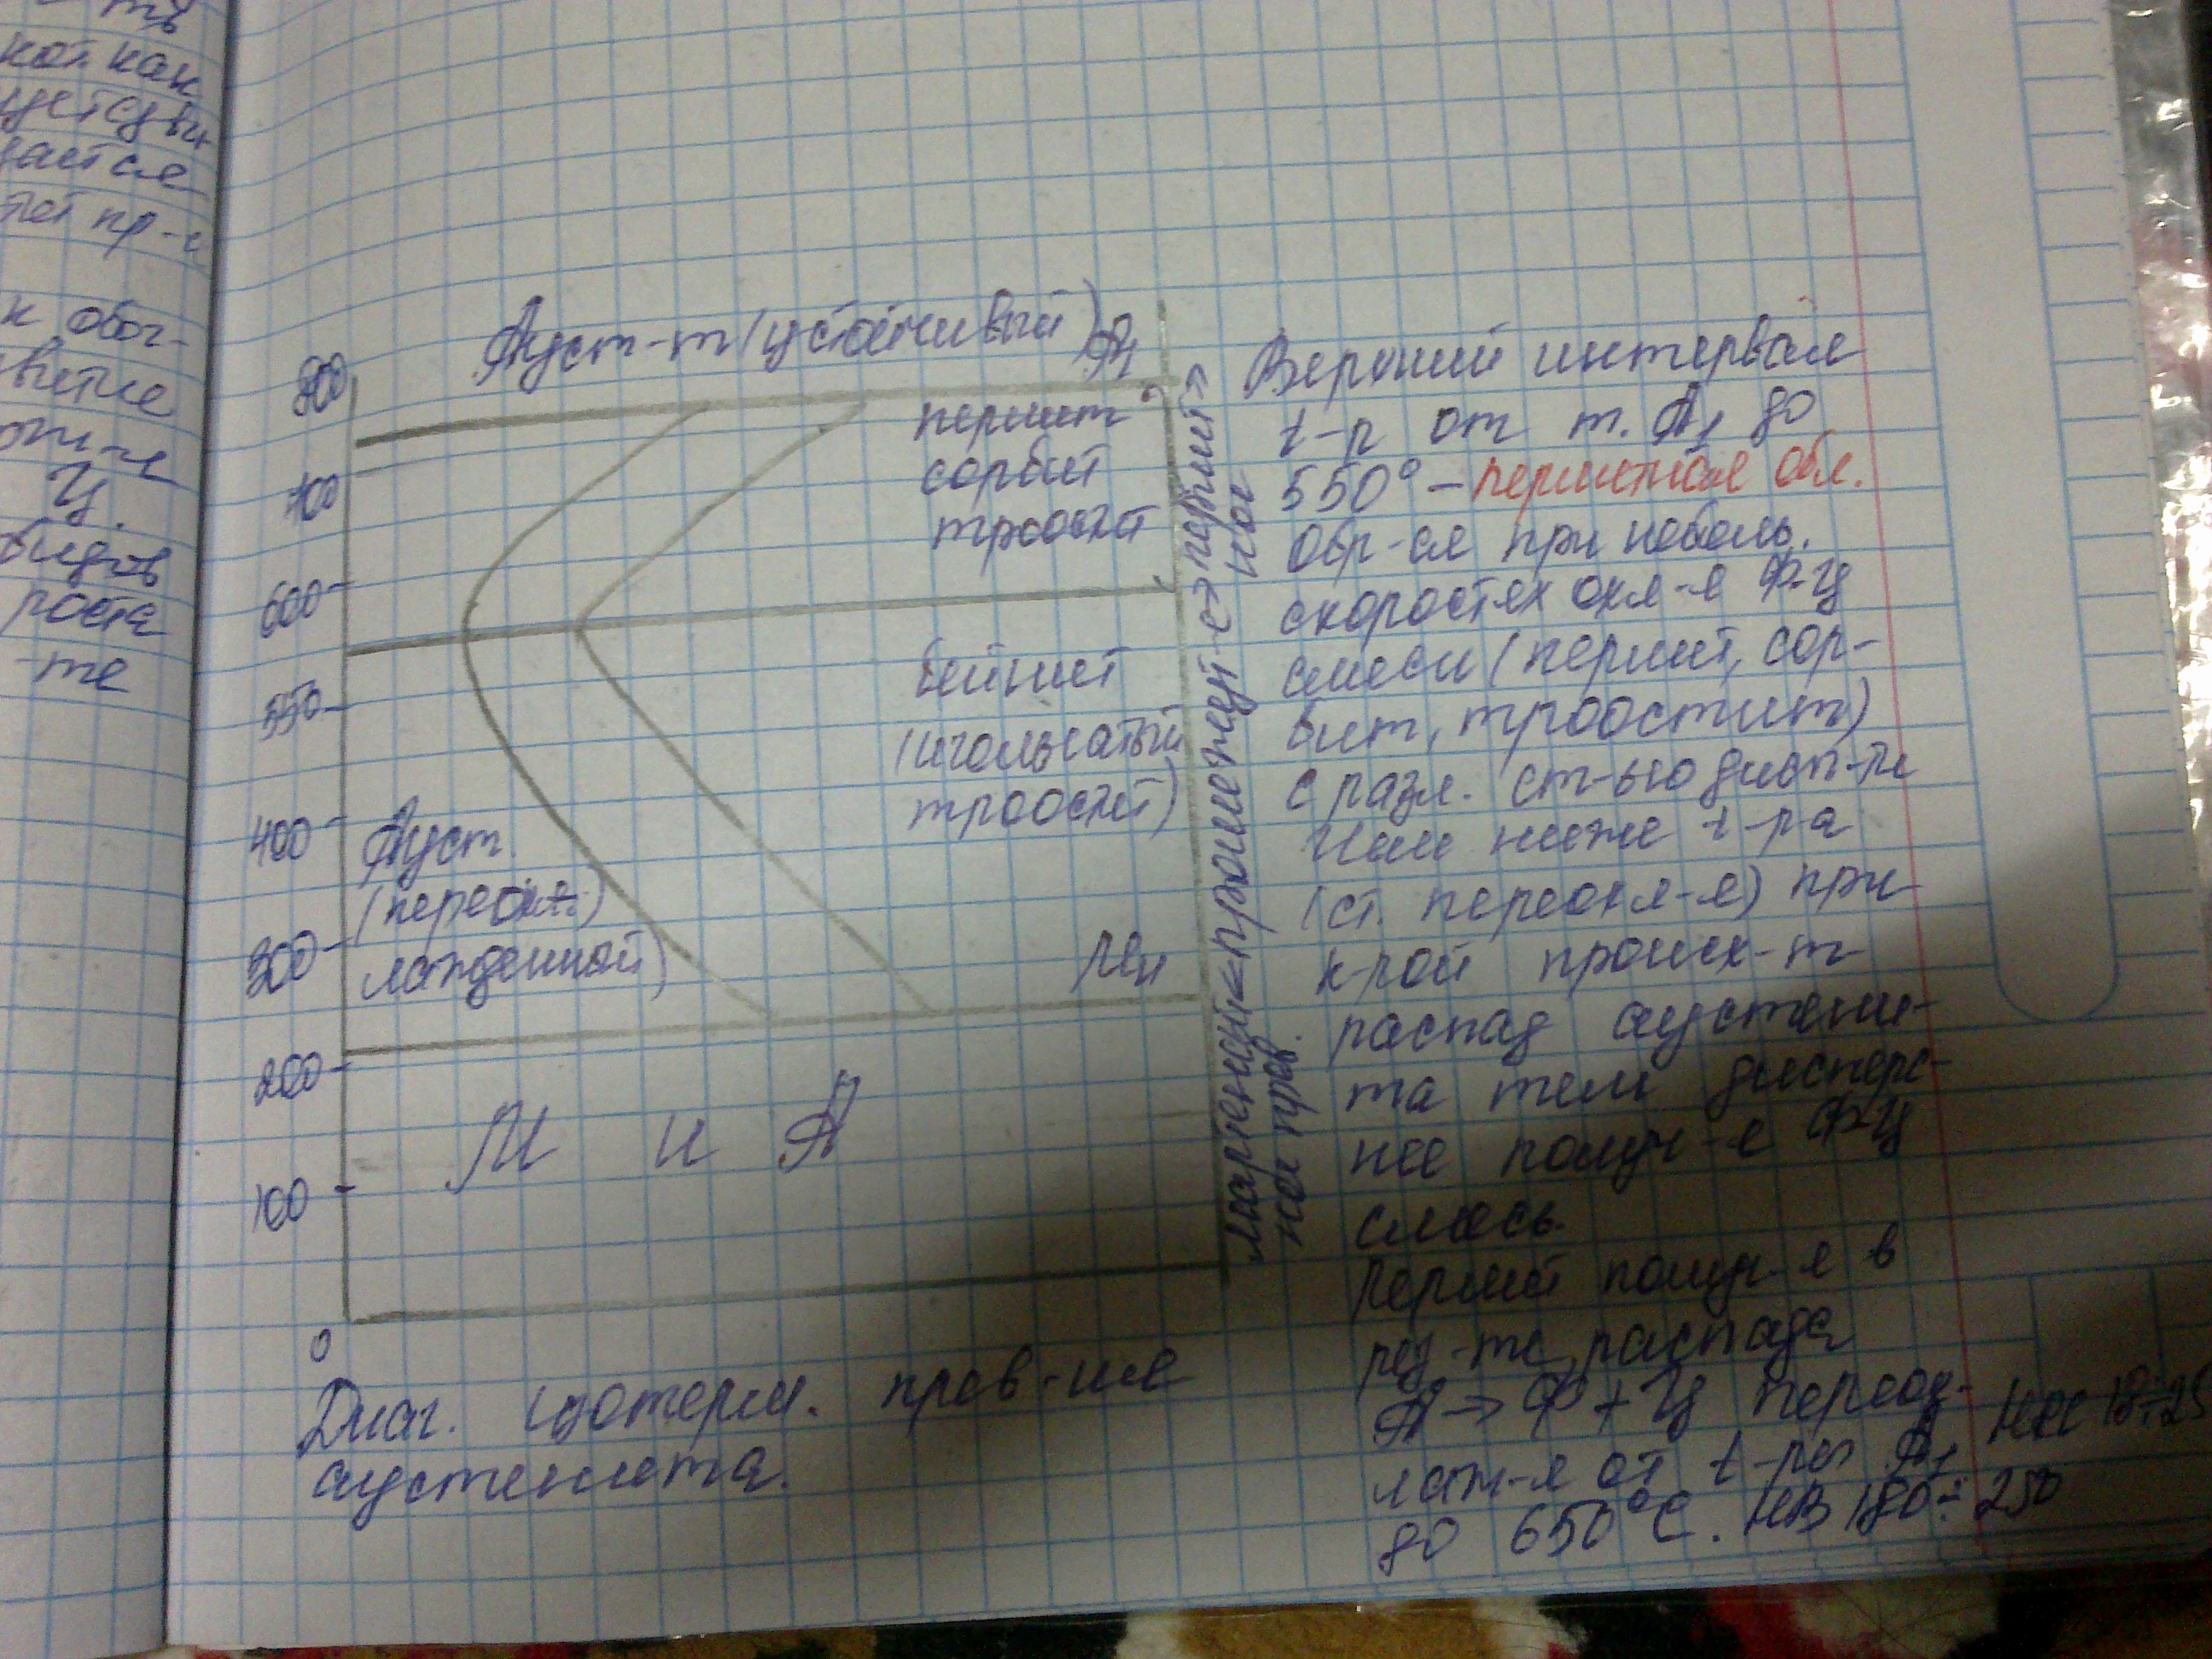 кот. как
дается
ет пр-е
к обог-
Ц.
видов
роста
-те
Ауст-т (устойчивый) А₁
800
700
600
550
400
300
200
100
0
перлит
сорбит
троостит
бейнит
(игольчатый
троостит)
Ауст.
(переох
лажденный)
Мн
М и А
мартенсит-
ное прев.
промежут-е
перлит-
ное
Диаг. изотерм. прев-ия
аустенита.
Верхний интервал
t-р от т. А₁ до
550° – перлитная обл.
Обр-ся при неболь.
скоростях охл-я Ф-Ц
смеси (перлит, сор-
бит, троостит)
с разл. ст-ью дисп-ти
Чем ниже t-ра
(ст. переохл-я) при
к-рой происх-т
распад аустени-
та тем дисперс-
нее получ-я Ф-Ц
смесь.
Перлит получ-я в
рез-те распада
А → Ф + Ц переох-
лаж-я от t-ры А₁
до 650°С. НВ 180÷250
HRC 18÷25